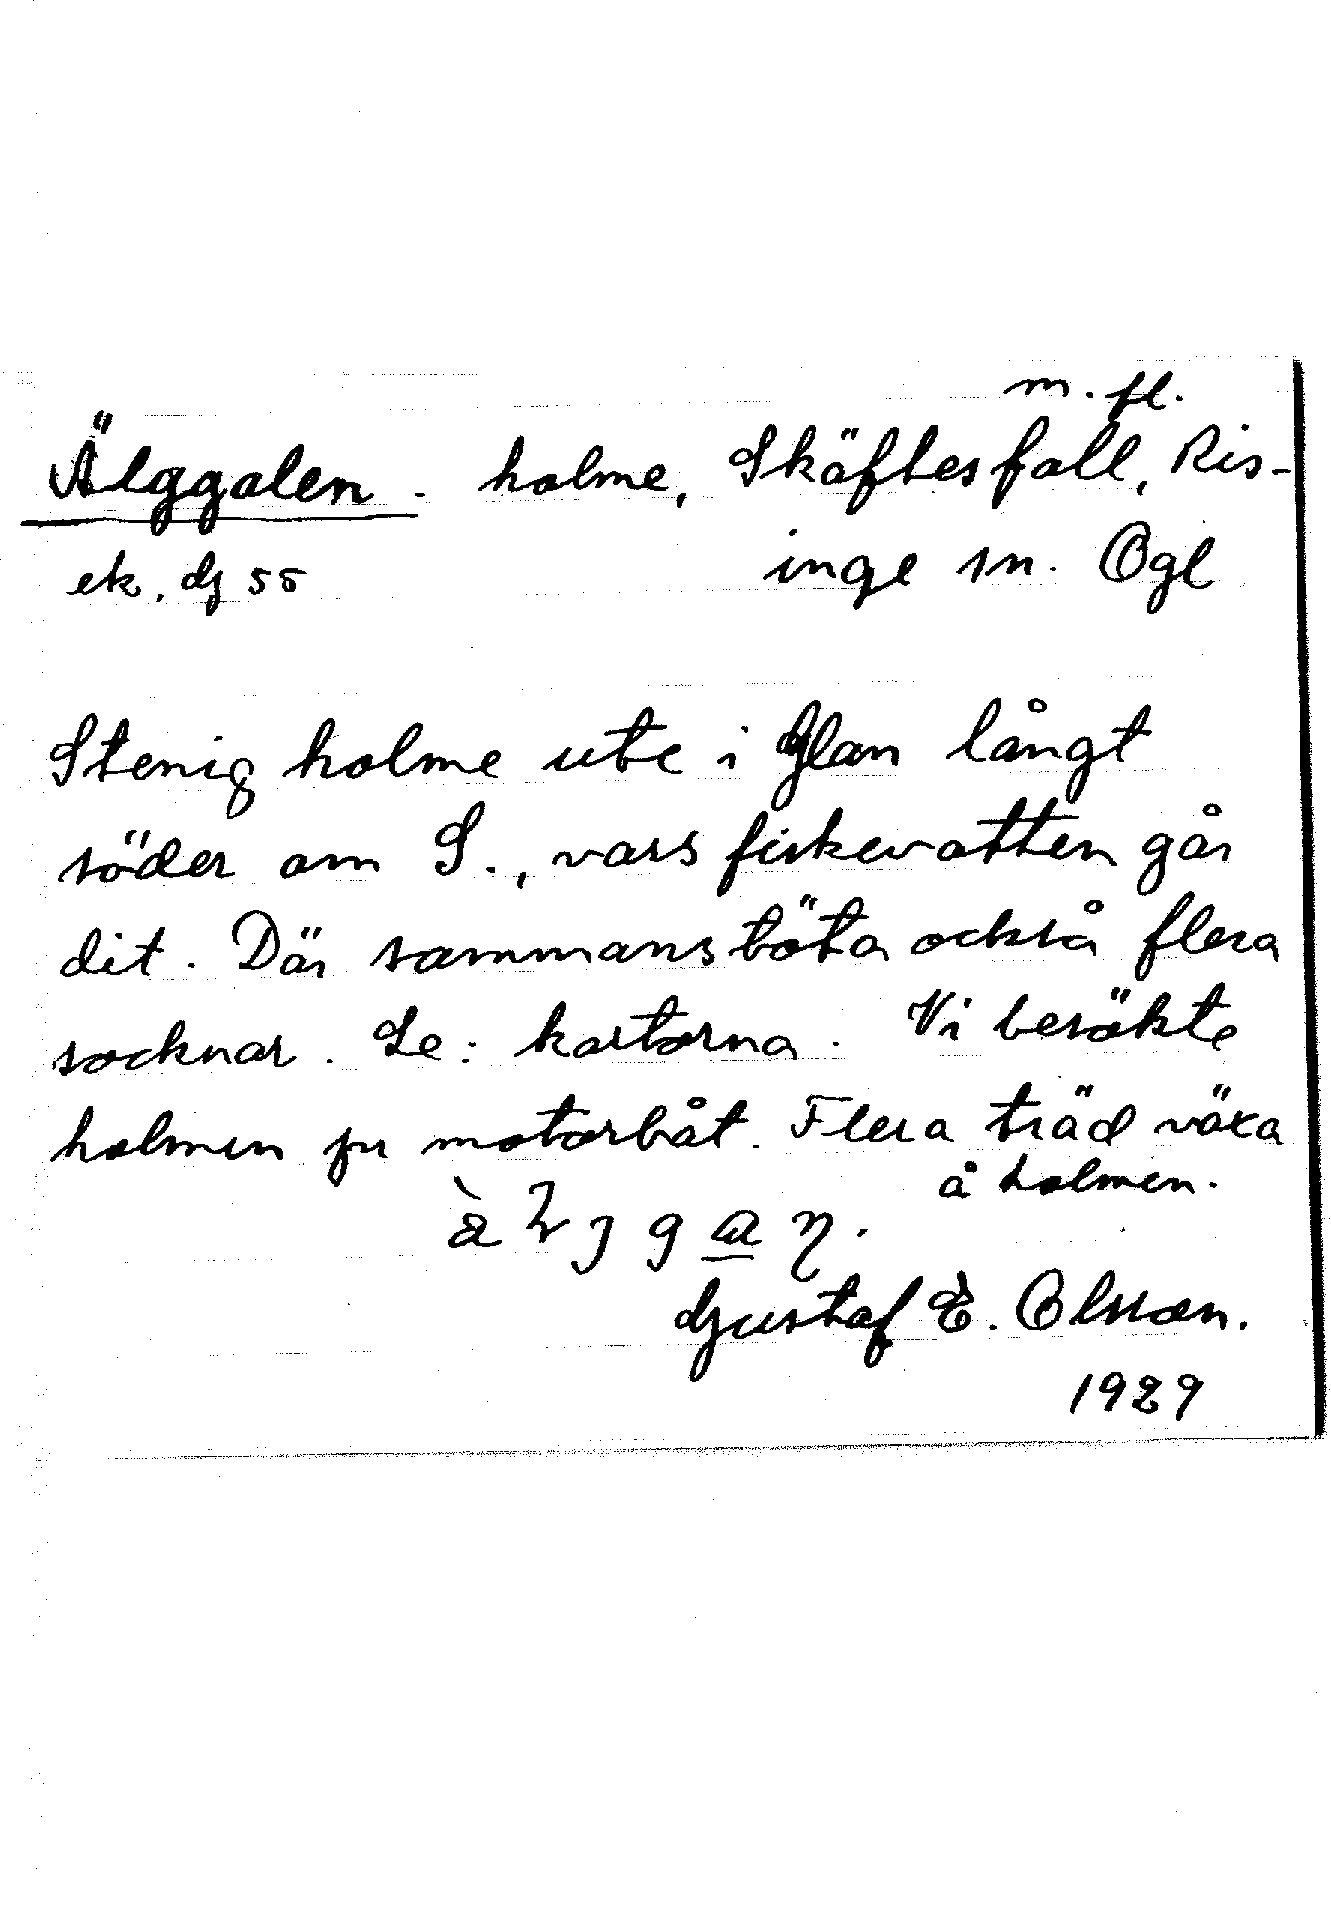 m. fl.
Älggalen. holme, Skäftesfall, Ris-
ek. dg 55 inge sn. Ögl
Stenig holme ute i Glan långt
söder om S., vars fiskevatten går
dit. Där sammanstöta också flera
socknar. Se: kartorna. Vi besökte
holmen pr motorbåt. Flera träd växa
å holmen.
Gustaf E. Olsson.
1929